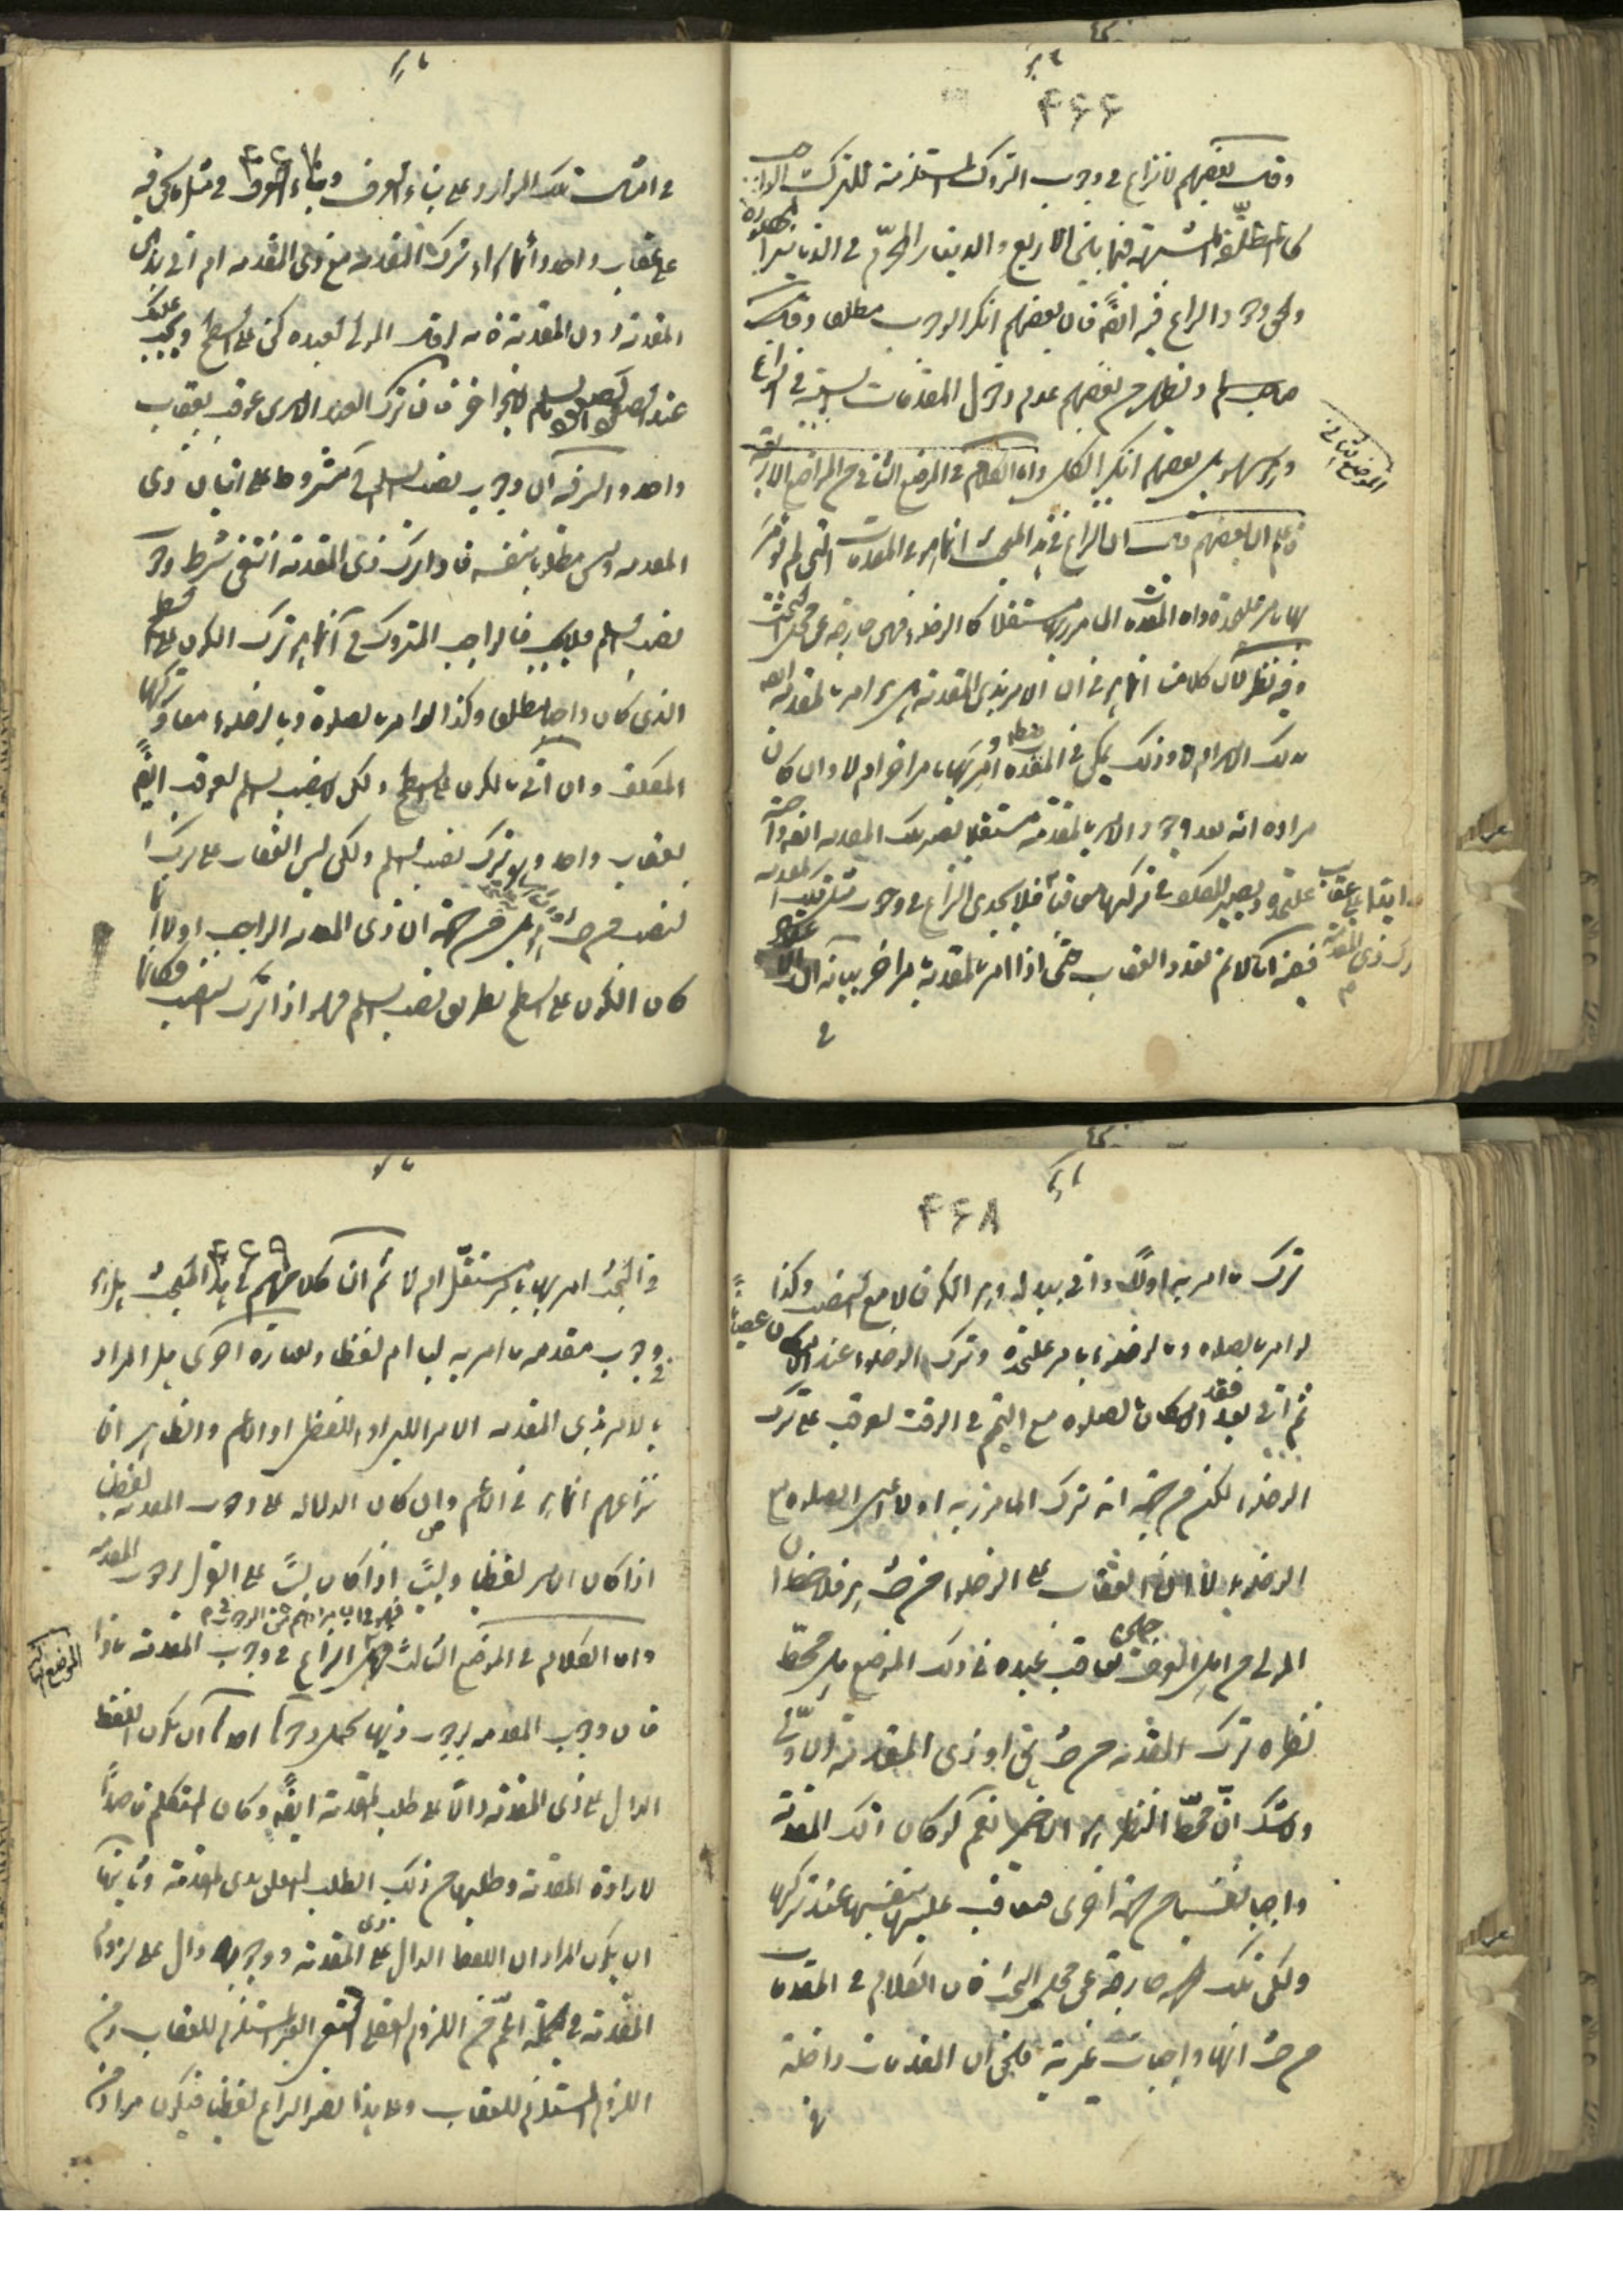 ۴۶۶
وقال بعضهم لا نزاع في وجوب التروك المستلزمة للترك الواجب
كالمطلقة المشتبهة فيما بين الاربع والدينار المحرم في الدنانير
والحق وجود النزاع فيه ايضا فان بعضهم انكر الوجوب مطلقا وقال
ويظهر من بعضهم عدم دخول المقدمات السببية في النزاع
بل بعضهم انكر الكل واما الكلام في الموضع الثاني من المواضع الاربعة
الموضع الثاني
فاعلم ان بعضهم قال ان النزاع في هذا المبحث انما هو في المقدمات التي لم يؤمر
بها بامر عليحدة واما المقدمة المامور بها مستقلا كالوضوء فهي خارجة عن محل البحث
وفيه نظر لان كلامنا انما هو في ان الامر بذي المقدمة هل هو امر بالمقدمة
بذلك الامر ام لا وذلك يمكن في المقدمة امر بها بامر اخر ام لا وان كان
مراده انه بعد وجود الامر بالمقدمة مستقلا يصير تلك المقدمة
عليحدة ويصير للمكلف في تركها فلا يجدي النزاع في وجوب تلك المقدمة
ففيه انا لا نم تعدد العقاب حتى اذا امر بالمقدمة بامر اخر بيانه ان
في
۴۶۷
في امثال تلك الموارد على بناء العرف وبناء العرف في مثل ما نحن فيه
على عقاب واحد وانما هو اذا ترك المقدمة مع ذي المقدمة ام اتى بذي
المقدمة دون المقدمة فانه لو قال المولى لعبده كن على السطح ويجب عليك
عند نصب السلم لا بنحو اخر فان ترك العبد الامرين عوقب بعقاب
واحد والسر فيه ان وجوب نصب السلم مشروط على اتيان ذي
المقدمة وليس مطلوبا بنفسه فاذا ترك ذي المقدمة انتفى شرط وجوب
نصب السلم فلا يجب فالواجب المتروك انما هو ترك الكون على السطح
الذي كان واجبا مطلقا وكذا لو امر بالصلوة وبالوضوء معا وتركهما
المكلف وان اتى بالكون على السطح ولكن لا بنصب السلم لعوقب ايضا
بعقاب واحد وهو ترك نصب السلم ولكن ليس العقاب على ترك
النصب من حيث هو بل من جهة ان ذي المقدمة الواجب اولا انما
كان الكون على السطح بطريق نصب السلم فهو اذا ترك النصب فكانما
۴۶۸
ترك ما امر به اولا واتى ببدله وهو الكون لا مع النصب وكذا
لو امر بالصلوة وبالوضوء بامر عليحدة وترك الوضوء عند الامكان عصيانا
ثم اتى بعد فقد الامكان بالصلوة مع التيمم في الوقت لعوقب على ترك
الوضوء لكنه من جهة انه ترك المامور به اولا اعني الصلوة مع
الوضوء لا ان العقاب على الوضوء من حيث هو فلاحظ ان
المولى من اهل العرف حين يعاقب عبده في ذلك الموضع هل محط
نظره ترك المقدمة من حيث هي او ذي المقدمة الاولى
ولا شك ان محط النظر هو الاخير نعم لو كان تلك المقدمة
واجبا نفسيا من جهة اخرى فيعاقب عليها بنفسها عند تركها
ولكن تلك جهة خارجة عن محل البحث فان الكلام في المقدمات
من حيث انها واجبات غيرية فالحق ان المقدمات داخلة
في
۴۶۹
في البحث امر بها بامر مستقل ام لا ثم ان كلامهم في هذا المبحث هل هو
في وجوب مقدمة ما امر به لبا ام لفظا وبعبارة اخرى هل المراد
بالامر بذي المقدمة الامر اللبي او اللفظي او الاعم والظاهر ان
نزاعهم انما هو في الاعم وان كان الدلالة على وجوب المقدمة لفظيا
اذا كان الامر لفظيا ولبيا اذا كان لبيا على القول بوجوب المقدمة
واما الكلام في الموضع الثالث فهو ان مرادهم من الوجوب في محل النزاع في وجوب المقدمة ماذا
الموضع الثالث
فان وجوب المقدمة بوجوب ذيها يحتمل وجوها احدها ان يكون اللفظ
الدال على ذي المقدمة دالا على طلب المقدمة ايضا وكان المتكلم قاصدا
لارادة المقدمة وطلبها من ذلك الطلب المتعلق بذي المقدمة وثانيها
ان يكون المراد ان اللفظ الدال على ذي المقدمة ووجوبه دال على لزوم
المقدمة في الجملة اعم من اللزوم العقلي الغير المستلزم للعقاب ومن
اللزوم المستلزم للعقاب وعلى هذا يصير النزاع لفظيا فيكون مراد من